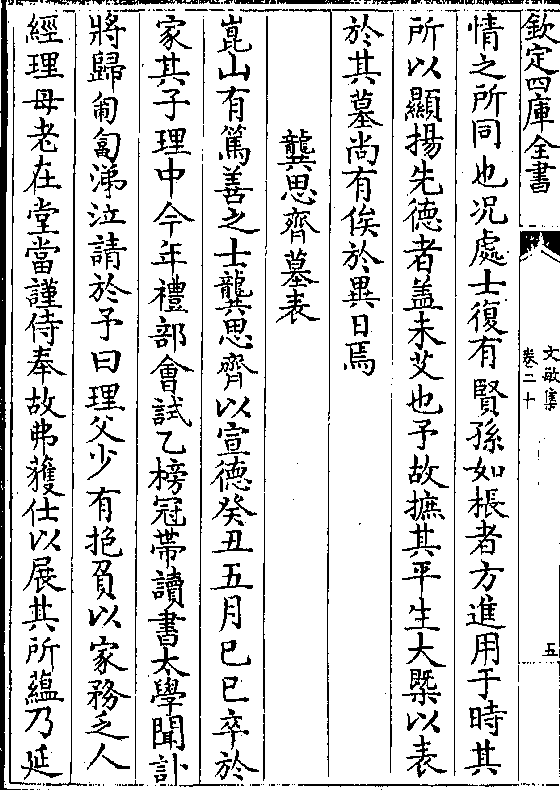 欽定四庫全書
文敏集
卷二十
五
情之所同也况處士復有賢孫如棖者方進用于時其
所以顯揚先德者葢未艾也予故摭其平生大槩以表
於其墓尚有俟於異日焉
龔思齊墓表
崑山有篤善之士龔思齊以宣德癸丑五月己巳卒於
家其子理中今年禮部會試乙榜冠帶讀書太學聞訃
將歸匍匐涕泣請於予曰理父少有抱負以家務乏人
經理母老在堂當謹侍奉故弗獲仕以展其所蘊乃延